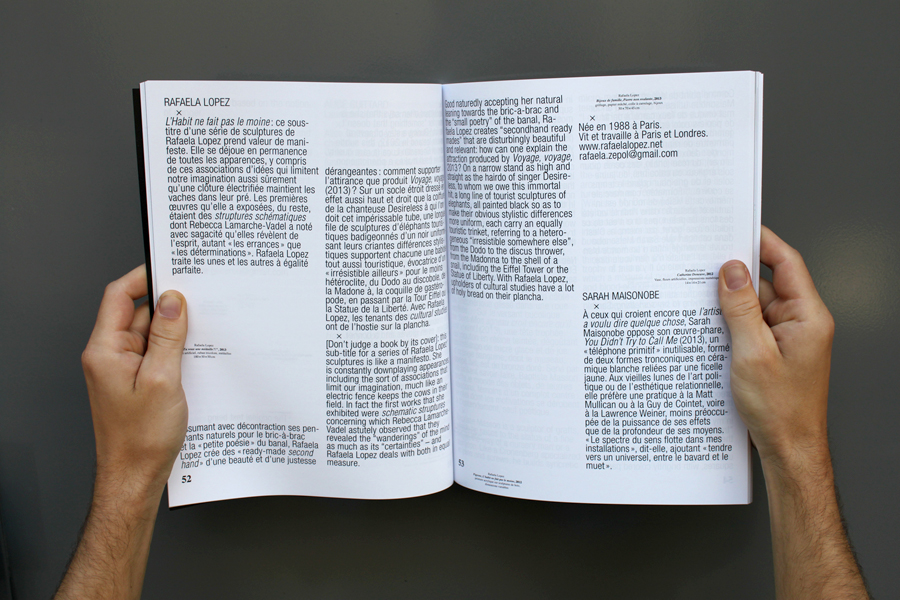 RAFAELA LOPEZ
×
L'Habit ne fait pas le moine : ce sous-
titre d'une série de sculptures de
Rafaela Lopez prend valeur de mani-
feste. Elle se déjoue en permanence
de toutes les apparences, y compris
de ces associations d'idées qui limitent
notre imagination aussi sûrement
qu'une clôture électrifiée maintient les
vaches dans leur pré. Les premières
œuvres qu'elle a exposées, du reste,
étaient des struptures schématiques
dont Rebecca Lamarche-Vadel a noté
avec sagacité qu'elles révèlent de
l'esprit, autant « les errances » que
« les déterminations ». Rafaela Lopez
traite les unes et les autres à égalité
parfaite.
ssumant avec décontraction ses pen-
hants naturels pour le bric-à-brac
et la « petite poésie » du banal, Rafaela
Lopez crée des « ready-made second
hand » d'une beauté et d'une justesse
52
dérangeantes : comment supporter
l'attirance que produit Voyage, voyage
(2013) ? Sur un socle étroit dressé en
effet aussi haut et droit que la coiffure
de la chanteuse Desireless à qui l'on
doit cet impérissable tube, une longue
file de sculptures d'éléphants touris-
tiques badigeonnés d'un noir uniformi-
sant leurs criantes différences stylis-
tiques supportent chacune une babiole
tout aussi touristique, évocatrice d'un
« irrésistible ailleurs » pour le moins
hétéroclite, du Dodo au discobole, de
la Madone à, la coquille de gastéro-
pode, en passant par la Tour Eiffel ou
la Statue de la Liberté. Avec Rafaela
Lopez, les tenants des cultural studies
ont de l'hostie sur la plancha.
×
[Don't judge a book by its cover]: this
sub-title for a series of Rafaela Lopez
sculptures is like a manifesto. She
is constantly downplaying appearances
including the sort of associations that
limit our imagination, much like an
electric fence keeps the cows in their
field. In fact the first works that she
exhibited were schematic struptures
concerning which Rebecca Lamarche-
Vadel astutely observed that they
revealed the "wanderings" of the mind
as much as its "certainties" – and
Rafaela Lopez deals with both in equal
measure.
Good naturedly accepting her natural
leaning towards the bric-a-brac and
the "small poetry" of the banal, Ra-
faela Lopez creates "secondhand ready
mades" that are disturbingly beautiful
and relevant: how can one explain the
attraction produced by Voyage, voyage,
2013? On a narrow stand as high and
straight as the hairdo of singer Desire-
less, to whom we owe this immortal
, a long line of tourist sculptures of
elephants, all painted black so as to
make their obvious stylistic differences
more uniform, each carry an equally
touristic trinket, referring to a hetero-
geneous "irresistible somewhere else",
from the Dodo to the discus thrower,
from the Madonna to the shell of a
snail, including the Eiffel Tower or the
Statue of Liberty. With Rafaela Lopez,
upholders of cultural studies have a lot
of holy bread on their plancha.
53
×
Née en 1988 à Paris.
Vit et travaille à Paris et Londres.
www.rafaelalopez.net
rafaela.zepol@gmail.com
SARAH MAISONOBE
×
À ceux qui croient encore que l'artiste
a voulu dire quelque chose, Sarah
Maisonobe oppose son œuvre-phare,
You Didn't Try to Call Me (2013), un
« téléphone primitif » inutilisable, formé
de deux formes tronconiques en céra-
mique blanche reliées par une ficelle
jaune. Aux vieilles lunes de l'art poli-
tique ou de l'esthétique relationnelle,
elle préfère une pratique à la Matt
Mullican ou à la Guy de Cointet, voire
à la Lawrence Weiner, moins préoccu-
pée de la puissance de ses effets
que de la profondeur de ses moyens.
« Le spectre du sens flotte dans mes
installations », dit-elle, ajoutant « tendre
vers un universel, entre le bavard et le
muet ».